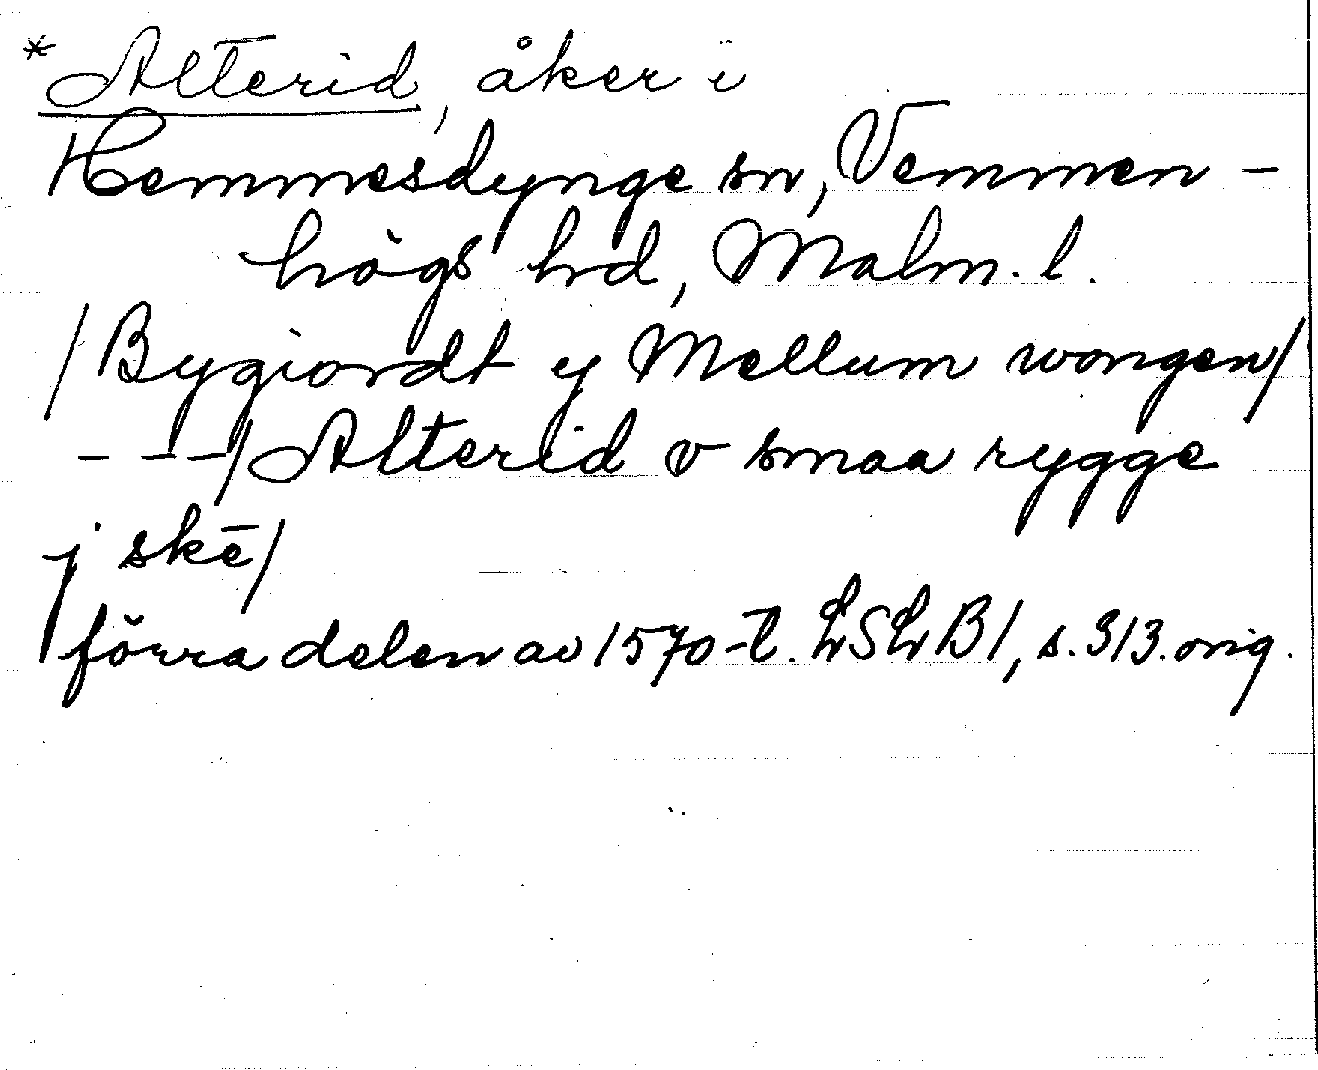 *Alterid, åker i
Hemmesdynge sn, Vemmen-
högs hd, Malm. l.
/Bygiordt y Mellum wongen/
---/Alterid v smaa rygge
j skē/
förra delen av 1570-t. LSLB1, s. 313. orig.